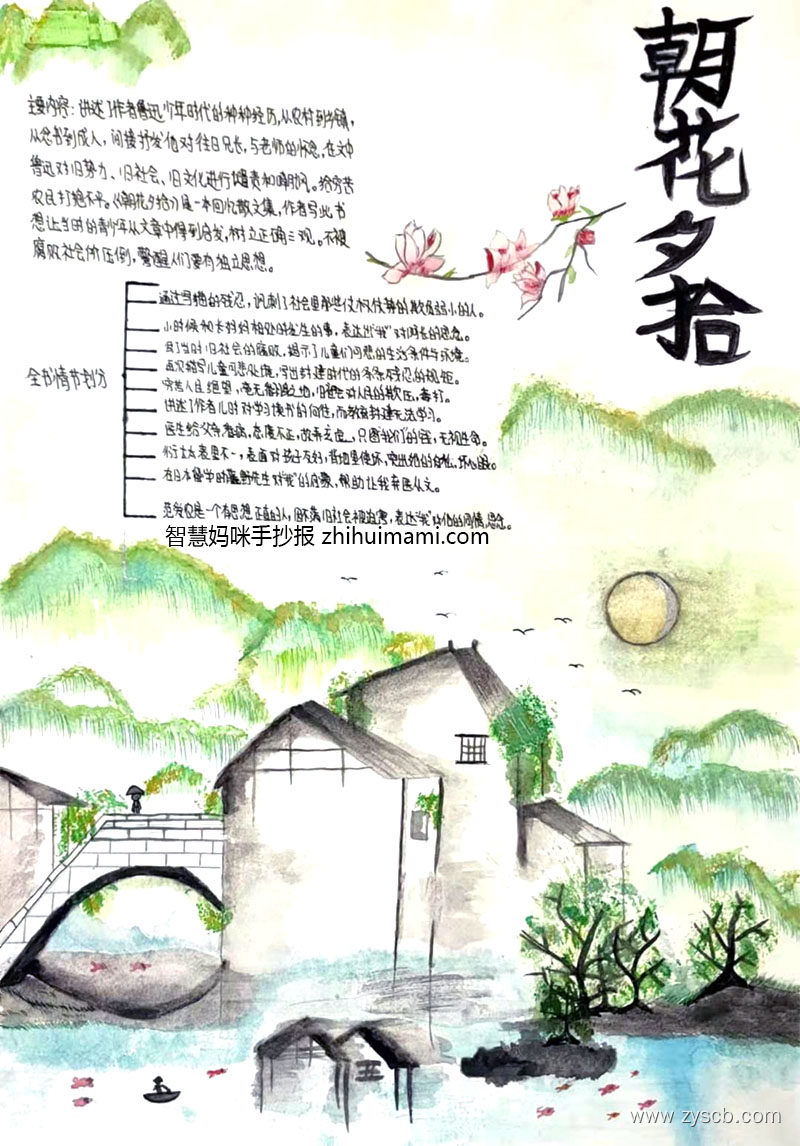 朝花夕拾
主要内容：讲述了作者鲁迅少年时代的种种经历，从农村到乡镇，
从念书到成人，间接抒发他对往日兄长，与老师的怀念，在文中
鲁迅对旧势力、旧社会、旧文化进行谴责和嘲讽。给穷苦
农民打抱不平。《朝花夕拾》是一本回忆散文集，作者写此书
想让当时的青少年从文章中得到启发，树立正确三观。不被
腐败社会所压倒，警醒人们要有独立思想。
全书情节划分
通过写猫的残忍，讽刺了社会里那些仗权仗势的欺负弱小的人。
小时候和长妈妈相处时发生的事，表达出"我"对阿长的思念。
当时旧社会的腐败，揭示了儿童们可悲的生活条件与环境。
再次描写儿童可悲处境，写出封建时代的条条残忍的规矩。
穷苦人民绝望，毫无 旧社会对人民的欺压，毒打。
讲述了作者儿时对学习读书的向往，而教育封建无法学习。
医生给父亲看病，态度不正，故弄玄虚，只图我们的钱，无视生命。
衍太太表里不一，表面对孩子友好，背地里使坏，突出她的自私，坏心眼。
在日本留学时藤野先生对"我"的 帮助让我弃医从文。
范爱农是一个有思想正直的人，因 旧社会被迫害，表达"我"对他的同情，思念。
智慧妈咪手抄报 zhihuimami.com
www.zyscb.com